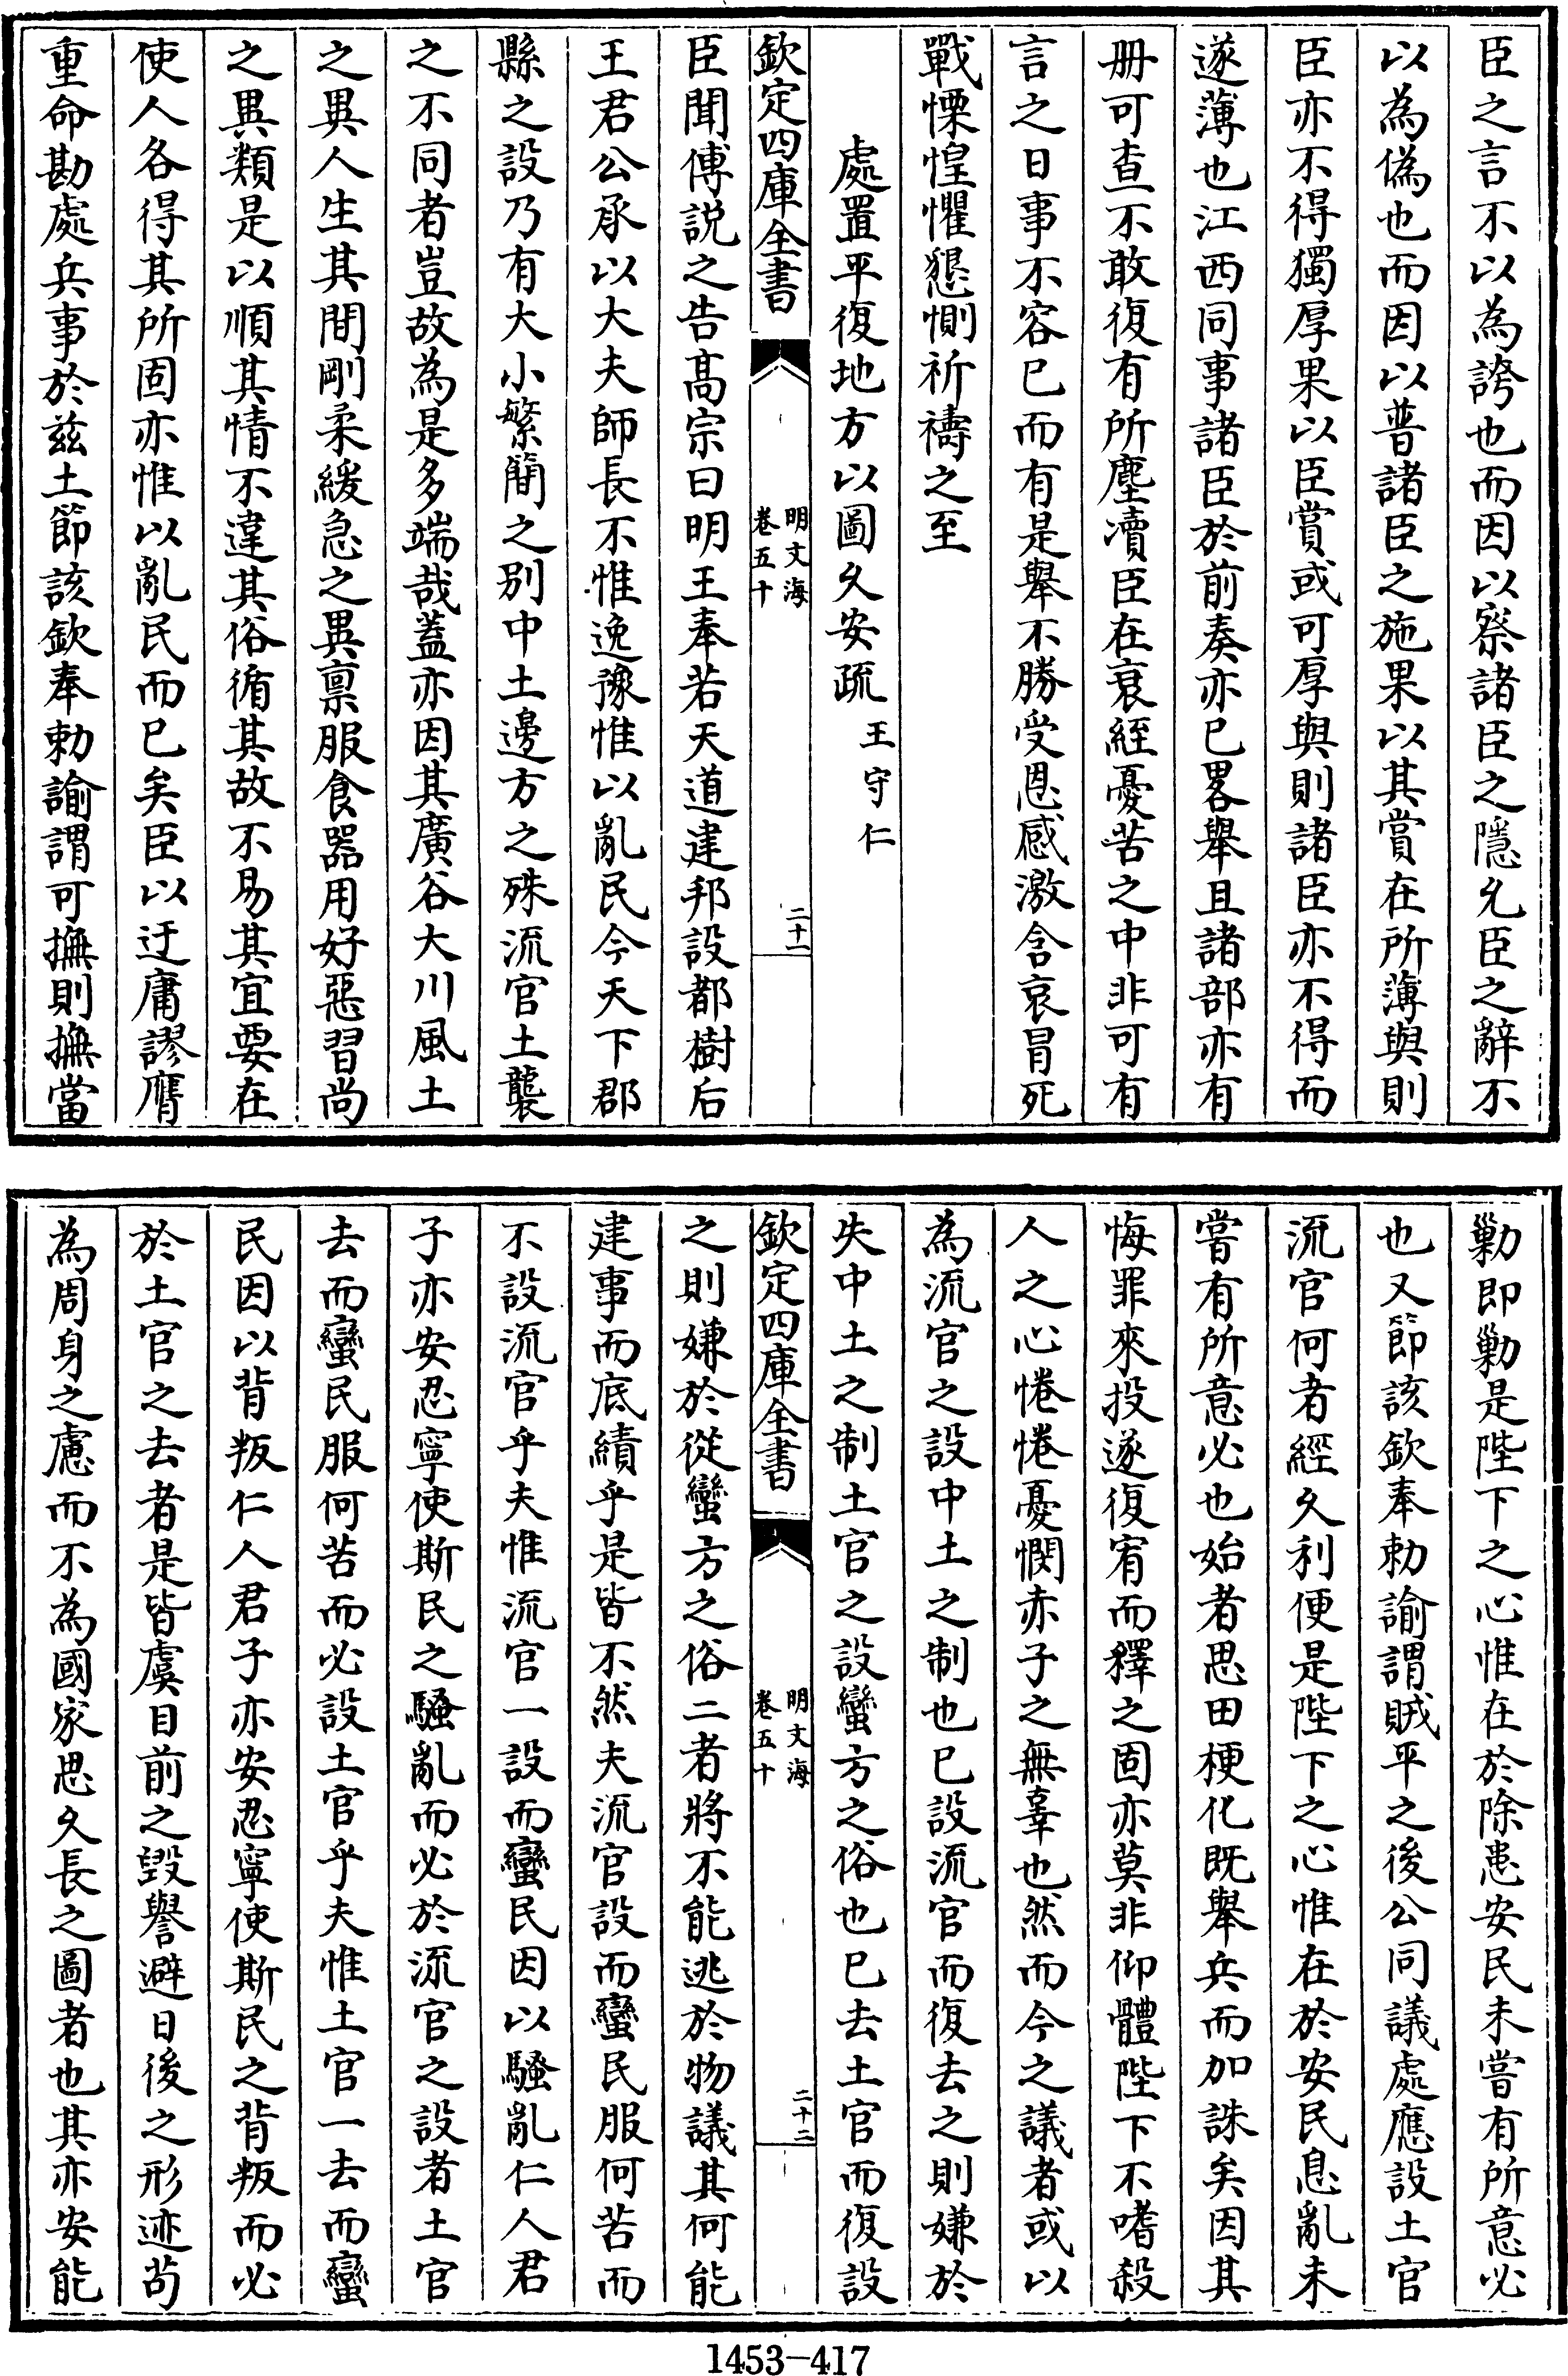 臣之言不以為誇也而因以察諸臣之隱允臣之辭不
以為偽也而因以普諸臣之施果以其賞在所薄與則
臣亦不得獨厚果以臣賞或可厚與則諸臣亦不得而
遂薄也江西同事諸臣於前奏亦已畧舉且諸部亦有
册可查不敢復有所塵凟臣在衰絰憂苦之中非可有
言之日事不容已而有是舉不勝受恩感激含哀冒死
戰慄惶懼懇惻祈禱之至
處置平復地方以圖久安疏 王守仁
欽定四庫全書 明文海 卷五十 二十一
臣聞傅説之告髙宗曰明王奉若天道建邦設都樹后
王君公承以大夫師長不惟逸豫惟以亂民今天下郡
縣之設乃有大小繁簡之别中土邊方之殊流官土襲
之不同者豈故為是多端哉葢亦因其廣谷大川風土
之異人生其間剛柔緩急之異禀服食器用好惡習尚
之異類是以順其情不違其俗循其故不易其宜要在
使人各得其所固亦惟以亂民而已矣臣以迂庸謬膺
重命勘處兵事於兹土節該欽奉勅諭謂可撫則撫當
勦即勦是陛下之心惟在於除患安民未嘗有所意必
也又節該欽奉勅諭謂賊平之後公同議處應設土官
流官何者經久利便是陛下之心惟在於安民息亂未
嘗有所意必也始者思田梗化既舉兵而加誅矣因其
悔罪來投遂復宥而釋之固亦莫非仰體陛下不嗜殺
人之心惓惓憂憫赤子之無辜也然而今之議者或以
為流官之設中土之制也已設流官而復去之則嫌於
失中土之制土官之設蠻方之俗也已去土官而復設
欽定四庫全書 明文海 卷五十 二十二
之則嫌於從蠻方之俗二者將不能逃於物議其何能
建事而底績乎是皆不然夫流官設而蠻民服何苦而
不設流官乎夫惟流官一設而蠻民因以騷亂仁人君
子亦安忍寧使斯民之騷亂而必於流官之設者土官
去而蠻民服何苦而必設土官乎夫惟土官一去而蠻
民因以背叛仁人君子亦安忍寧使斯民之背叛而必
於土官之去者是皆虞目前之毀譽避日後之形迹苟
為周身之慮而不為國家思久長之圖者也其亦安能
1453-417